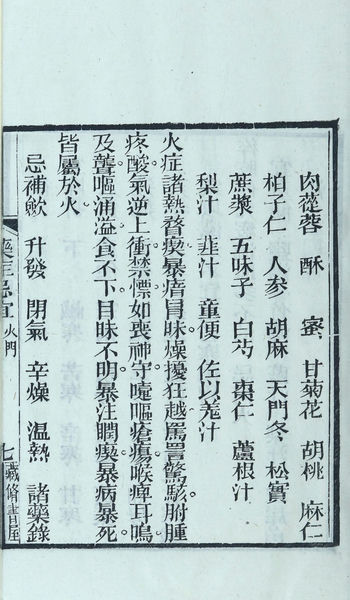 肉蓯蓉 酥 蜜 甘菊花 胡桃 麻仁
柏子仁 人參 胡麻 天門冬 松實
蔗漿 五味子 白芍 棗仁 蘆根汁
梨汁 韭汁 童便 佐以姜汁
火症諸熱瞀瘈暴瘖冒昧燥擾狂越罵詈驚駭胕腫
疼酸氣逆上衝禁慄如喪神守嚏嘔瘡瘍喉痺耳鳴
及聾嘔涌溢食不下目昧不明暴注瞤瘈暴病暴死
皆屬於火
忌補斂 升發 閉氣 辛燥 溫熱 諸藥錄
藥症忌宜 火門 七 藏修書屋